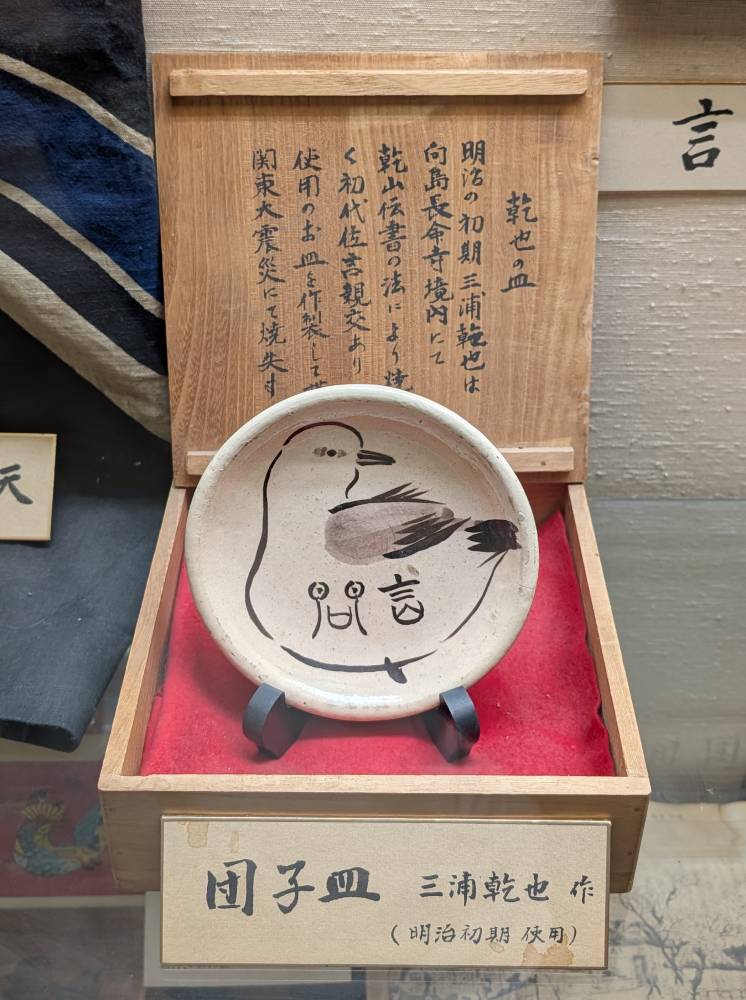 乾也の皿
明治の初期三浦乾也は
向島長命寺境内にて
乾山伝書の法により焼
く初代佐吉親交あり
使用のお皿を作製して
関東大震災にて焼失す
言問
団子皿 三浦乾也 作
(明治初期 使用)
言
天